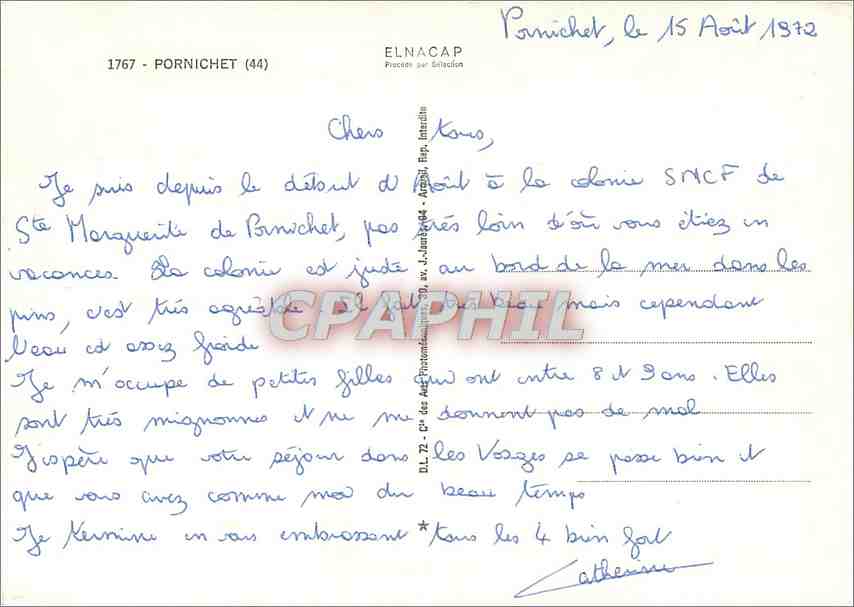 Pornichet, le 15 Août 1972
ELNACAP
Procédé par Sélection
1767 - PORNICHET (44)
Chers tous,
Je suis depuis le début d'Août à la colonie SNCF de
Ste Marguerite de Pornichet, pas très loin d'où vous étiez en
vacances. La colonie est juste au bord de la mer dans les
pins, c'est très agréable. Il fait très beau mais cependant
l'eau est assez froide
Je m'occupe de petites filles qui ont entre 8 et 9 ans. Elles
sont très mignonnes et ne me donnent pas de mal
J'espère que votre séjour dans les Vosges se passe bien et
que vous avez comme moi du beau temps
Je termine en vous embrassant tous les 4 bien fort
Catherine
D.L. 72 - Cie des Arts Photomécaniques, 30, av. J.-Jaurès, 94 - Arcueil, Rep. Interdite
CPAPHIL